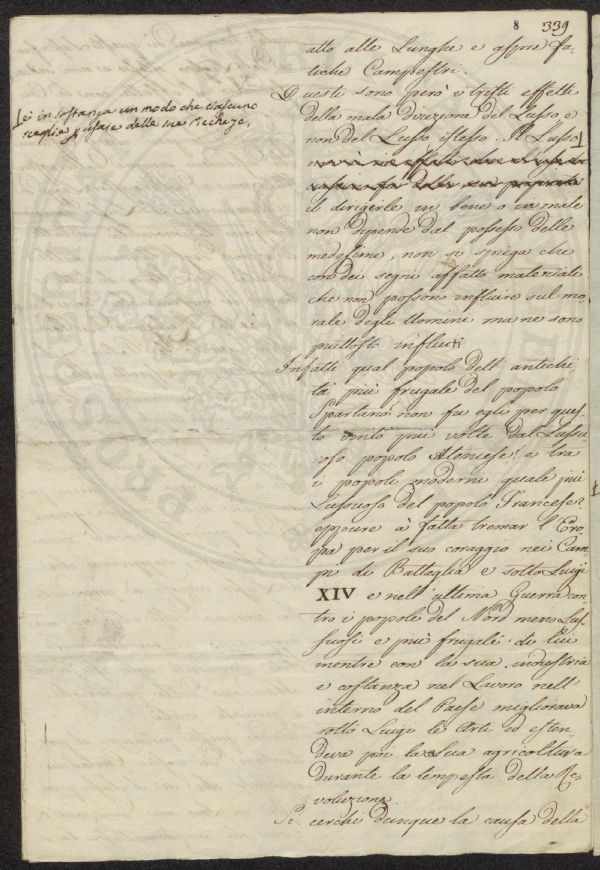 8 339
atto alle Lunghe e aspre fa-
tiche Campestri.
Questi sono però i tristi effetti
della mala direzione del Lusso, e
non del Lusso istesso. Il Lusso
è in sostanza un modo che ciascuno
sceglie p usare delle sue ricchezze,
il dirigerle in bene o in male
non dipende dal possesso delle
medesime, non si spiega che
con dei segni affatto materiali
che non possono influire sul mo-
rale degli Uomini ma ne sono
piuttosto influiti
Infatti qual popolo dell antichi-
tà più frugale del popolo
Spartano non fu egli per ques-
to vinto più volte dal Lussu-
oso popolo Ateniese? e tra
i popoli moderni quale più
Lussuoso del popolo Francese?
eppure à fatto tremar l'Ero-
pa per il suo coraggio nei Cam-
pi di Battaglia e sotto Luigi
XIV e nell'ultima Guerra con
tro i popoli del Nord meno Lus-
suosi e più frugali di lui
mentre con la sua industria
e costanza nel Lavoro nell
interno del Paese migliorava
sotto Luigi le Arti ed esten-
deva poi la sua agricoltura
durante la tempesta della Re-
voluzione.
Si cerchi dunque la causa della